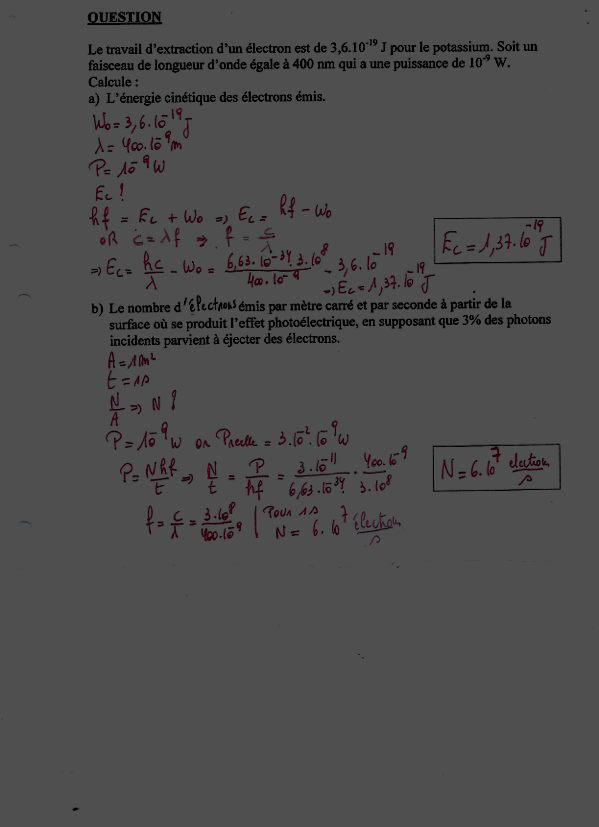 QUESTION
Le travail d'extraction d'un électron est de 3,6.10⁻¹⁹ J pour le potassium. Soit un
faisceau de longueur d'onde égale à 400 nm qui a une puissance de 10⁻⁹ W.
Calcule :
a) L'énergie cinétique des électrons émis.
W₀ = 3,6.10⁻¹⁹ J
λ = 400.10⁻⁹ m
P = 10⁻⁹ W
Ec ?
hf = Ec + W₀ => Ec = hf - W₀
OR c = λf => f = c/λ
=> Ec = hc/λ - W₀ = 6,63.10⁻³⁴. 3.10⁸ / 400.10⁻⁹ - 3,6.10⁻¹⁹
=> Ec = 1,37.10⁻¹⁹ J
Ec = 1,37.10⁻¹⁹ J
b) Le nombre d'électrons émis par mètre carré et par seconde à partir de la
surface où se produit l'effet photoélectrique, en supposant que 3% des photons
incidents parvient à éjecter des électrons.
A = 1m²
t = 1s
N/A => N ?
P = 10⁻⁹ W or Préelle = 3.10⁻².10⁻⁹ W
P = Nhf/t => N/t = P/hf = 3.10⁻¹¹ / 6,63.10⁻³⁴ . 400.10⁻⁹ / 3.10⁸
N = 6.10⁷ électrons/s
f = c/λ = 3.10⁸ / 400.10⁻⁹ | Pour 1s
N = 6.10⁷ électrons/s